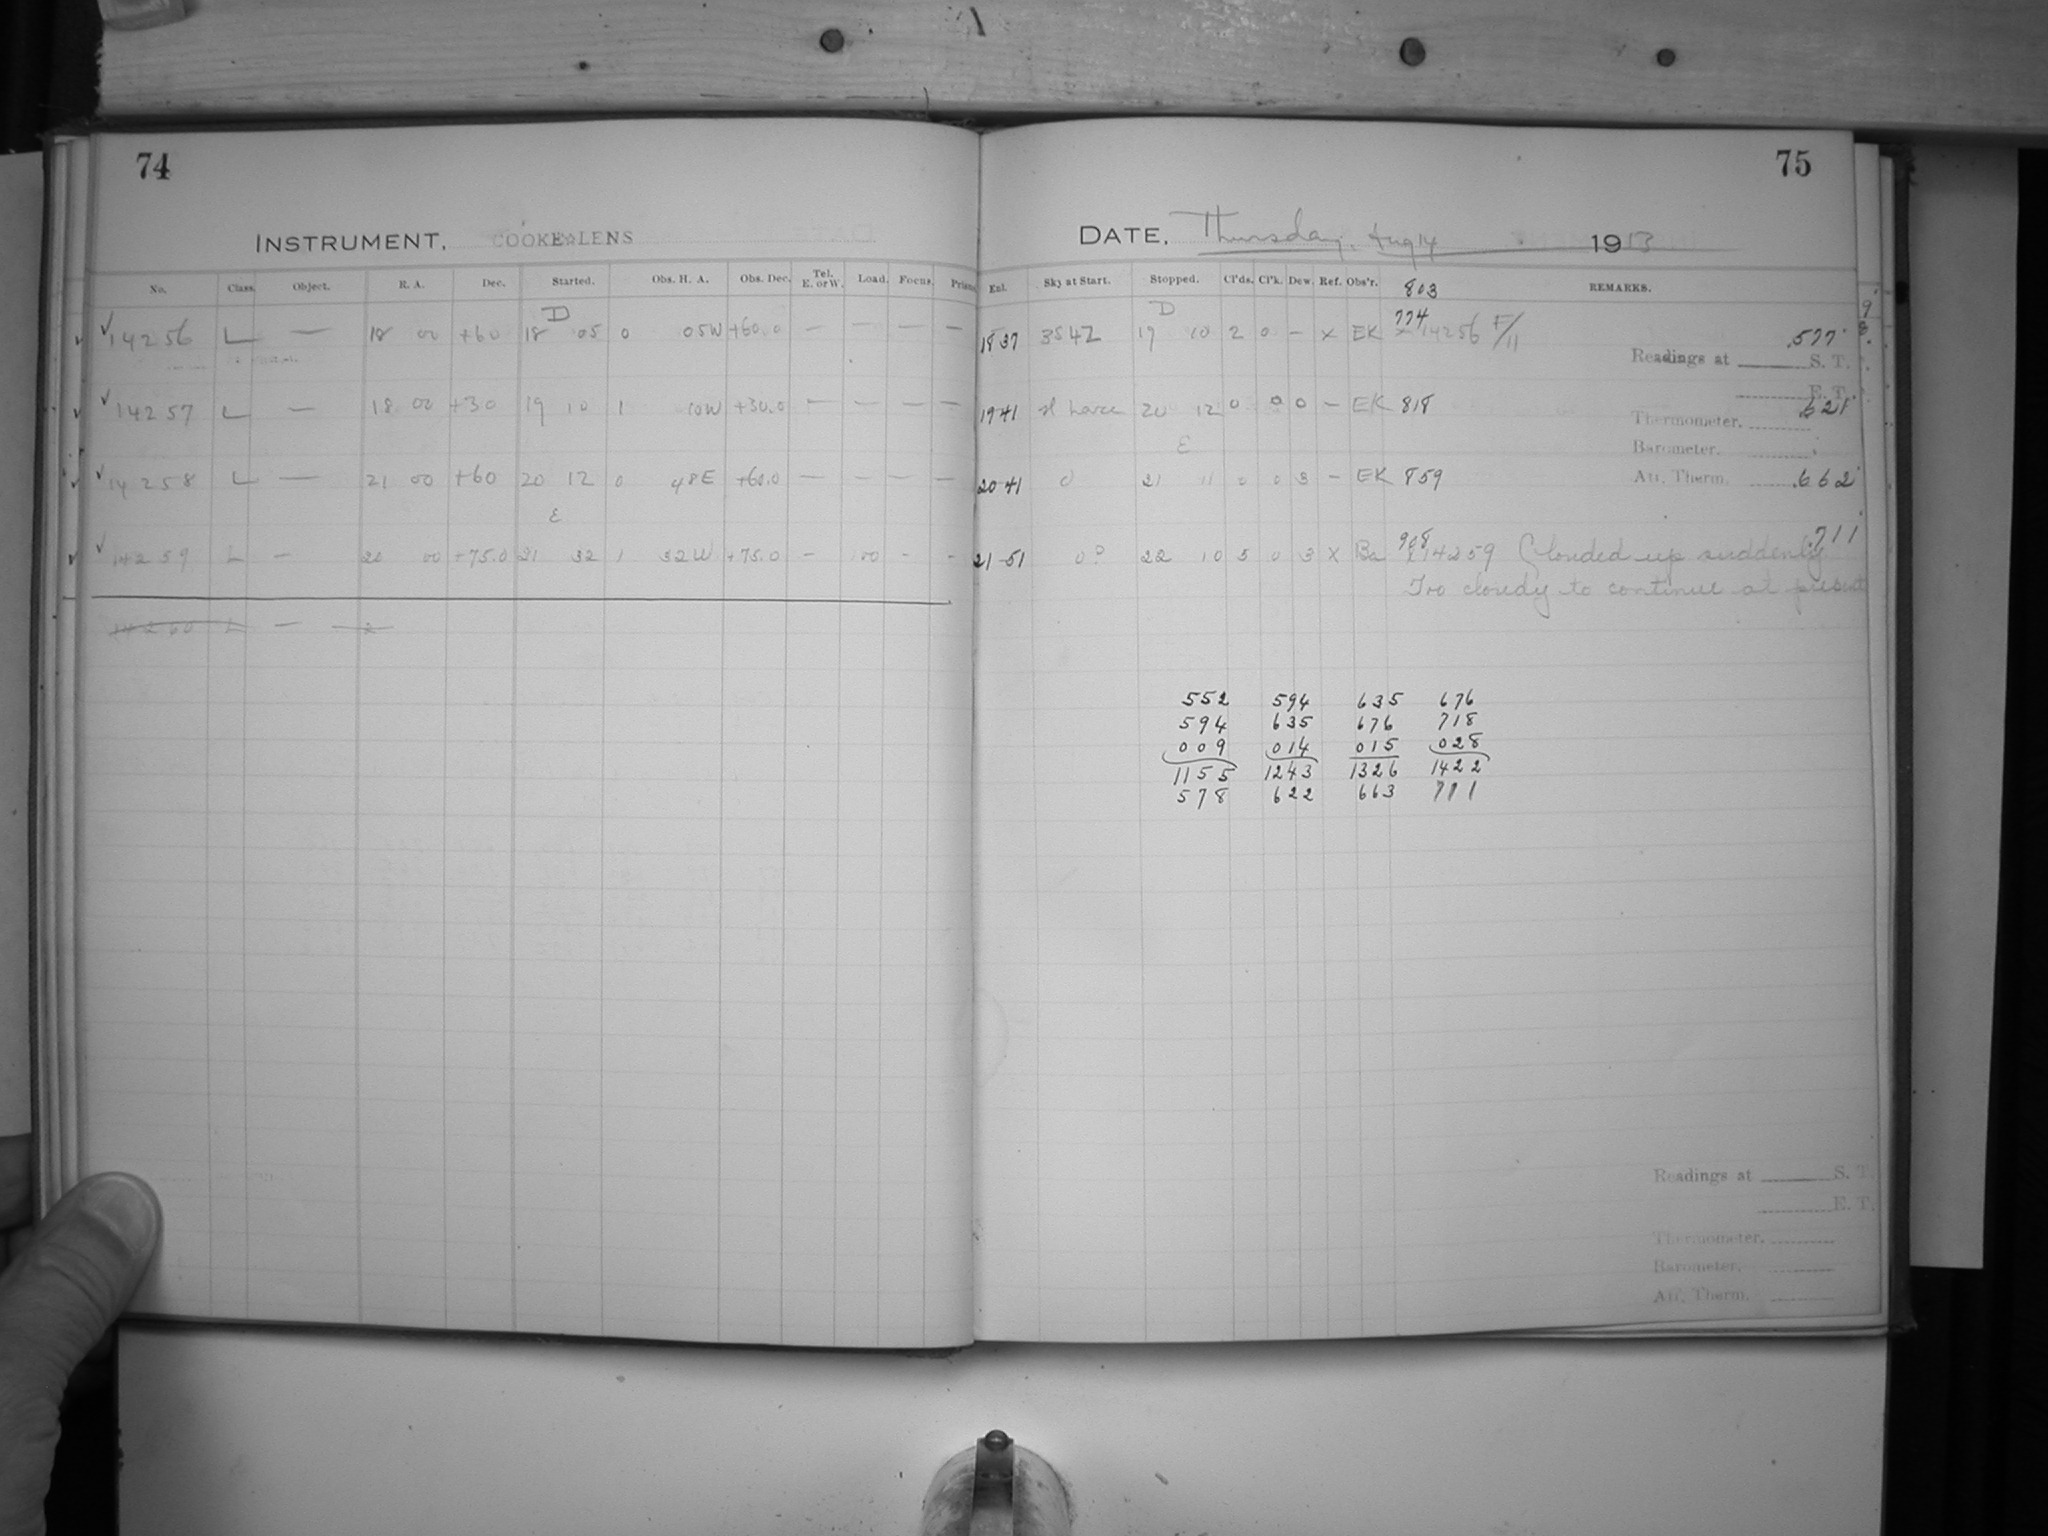 74
75
INSTRUMENT, COOKE LENS
DATE, Thursday, Aug 14 1913
No. Class. Object. R. A. Dec. Started. Obs. H. A. Obs. Dec. Tel. E. or W. Load. Focus. Prism. Ent. Sky at Start. Stopped. Cl'ds. Cl'k. Dew. Ref. Obs'r. 803 REMARKS.
D D 774
✓ 14256 L — 18 00 +60 18 05 0 05W +60.0 — — — — 18 37 3S4Z 19 10 2 0 — x EK x 14256 F/11 .577
Readings at S. T.
E. T.
✓ 14257 L — 18 00 +30 19 10 1 10W +30.0 — — — — 19 41 20 12 0 0 0 — EK 818 .621
Thermometer.
E
Barometer.
✓ 14258 L — 21 00 +60 20 12 0 48E +60.0 — — — — 20 41 0 21 11 0 0 3 — EK 859 Att. Therm. .662
E
✓ 14259 L — 20 00 +75.0 21 32 1 32W +75.0 — 100 - - 21 51 0? 22 10 5 0 3 X Ba 908 14259 Clouded up suddenly .711
Too cloudy to continue at present
14260 L — 2
552 594 635 676
594 635 676 718
009 014 015 028
1155 1243 1326 1422
578 622 663 711
Readings at S. T.
E. T.
Thermometer.
Barometer.
Att. Therm.